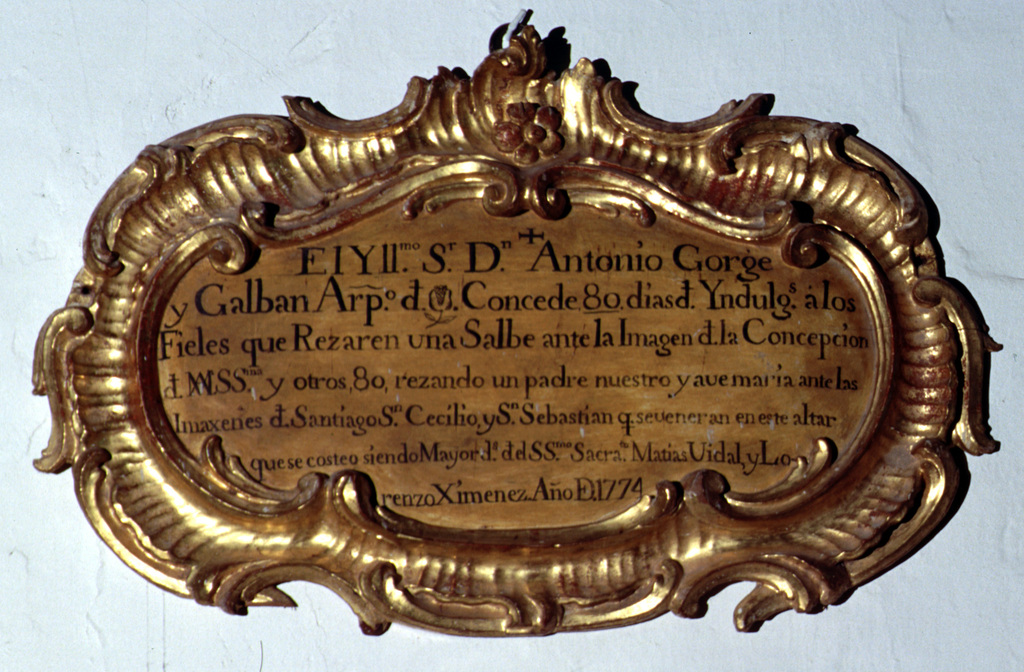 El Yll.mo S.r D.n Antonio Gorge
y Galban Arp̃.o đ. Concede 80. dias đ. Yndulg.s á los
Fieles que Rezaren una Salbe ante la Imagen đ. la Concepcion
đ. N. SS.ma y otros, 80, rezando un padre nuestro y ave maria ante las
Imaxenes đ. Santiago S.n Cecilio, y S.n Sebastian q. se veneran en este altar
que se costeo siendo Mayord.s del SS.mo Sacra.to Matias Vidal, y Lo-
renzo Ximenez. Año D. 1774.